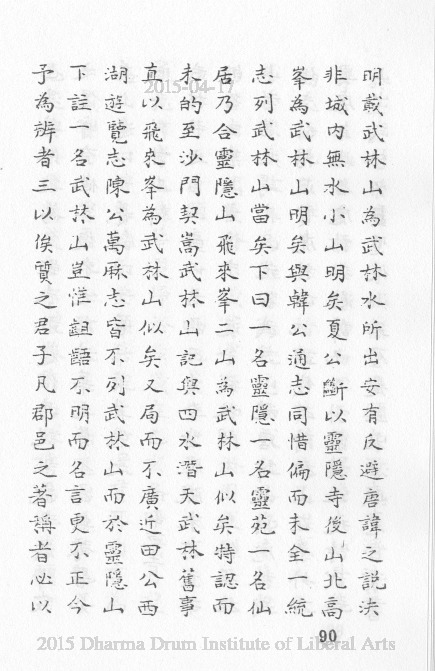 明載武林山為武林水所出安有反避唐諱之説決
非城內無水小山明矣夏公斷以靈隱寺後山北高
峯為武林山明矣與韓公通志同惜偏而未全一統
志列武林山當矣下曰一名靈隱一名靈苑一名仙
居乃合靈隱山飛來峯二山為武林山似矣特認而
未的至沙門契嵩武林山記與四水潛夫武林舊事
真以飛來峯為武林山似矣又局而不廣近田公西
湖遊覽志陳公萬曆志皆不列武林山而於靈隱山
下註一名武林山豈惟齟齬不明而名言更不正今
予為辨者三以俟質之君子凡郡邑之著稱者必以
90
2015-04-17
2015 Dharma Drum Institute of Liberal Arts